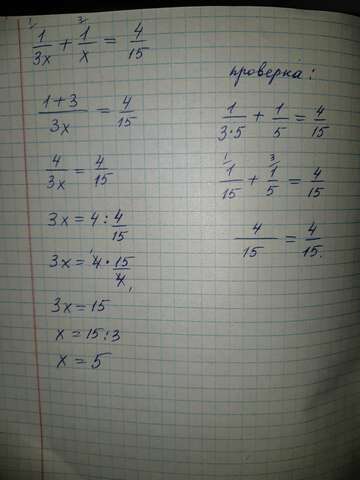 1/(3x) + 1/x = 4/15
(1+3)/(3x) = 4/15
4/(3x) = 4/15
3x = 4 : 4/15
3x = 4 · 15/4
3x = 15
x = 15 : 3
x = 5
проверка:
1/(3·5) + 1/5 = 4/15
1/15 + 1/5 = 4/15
4/15 = 4/15.